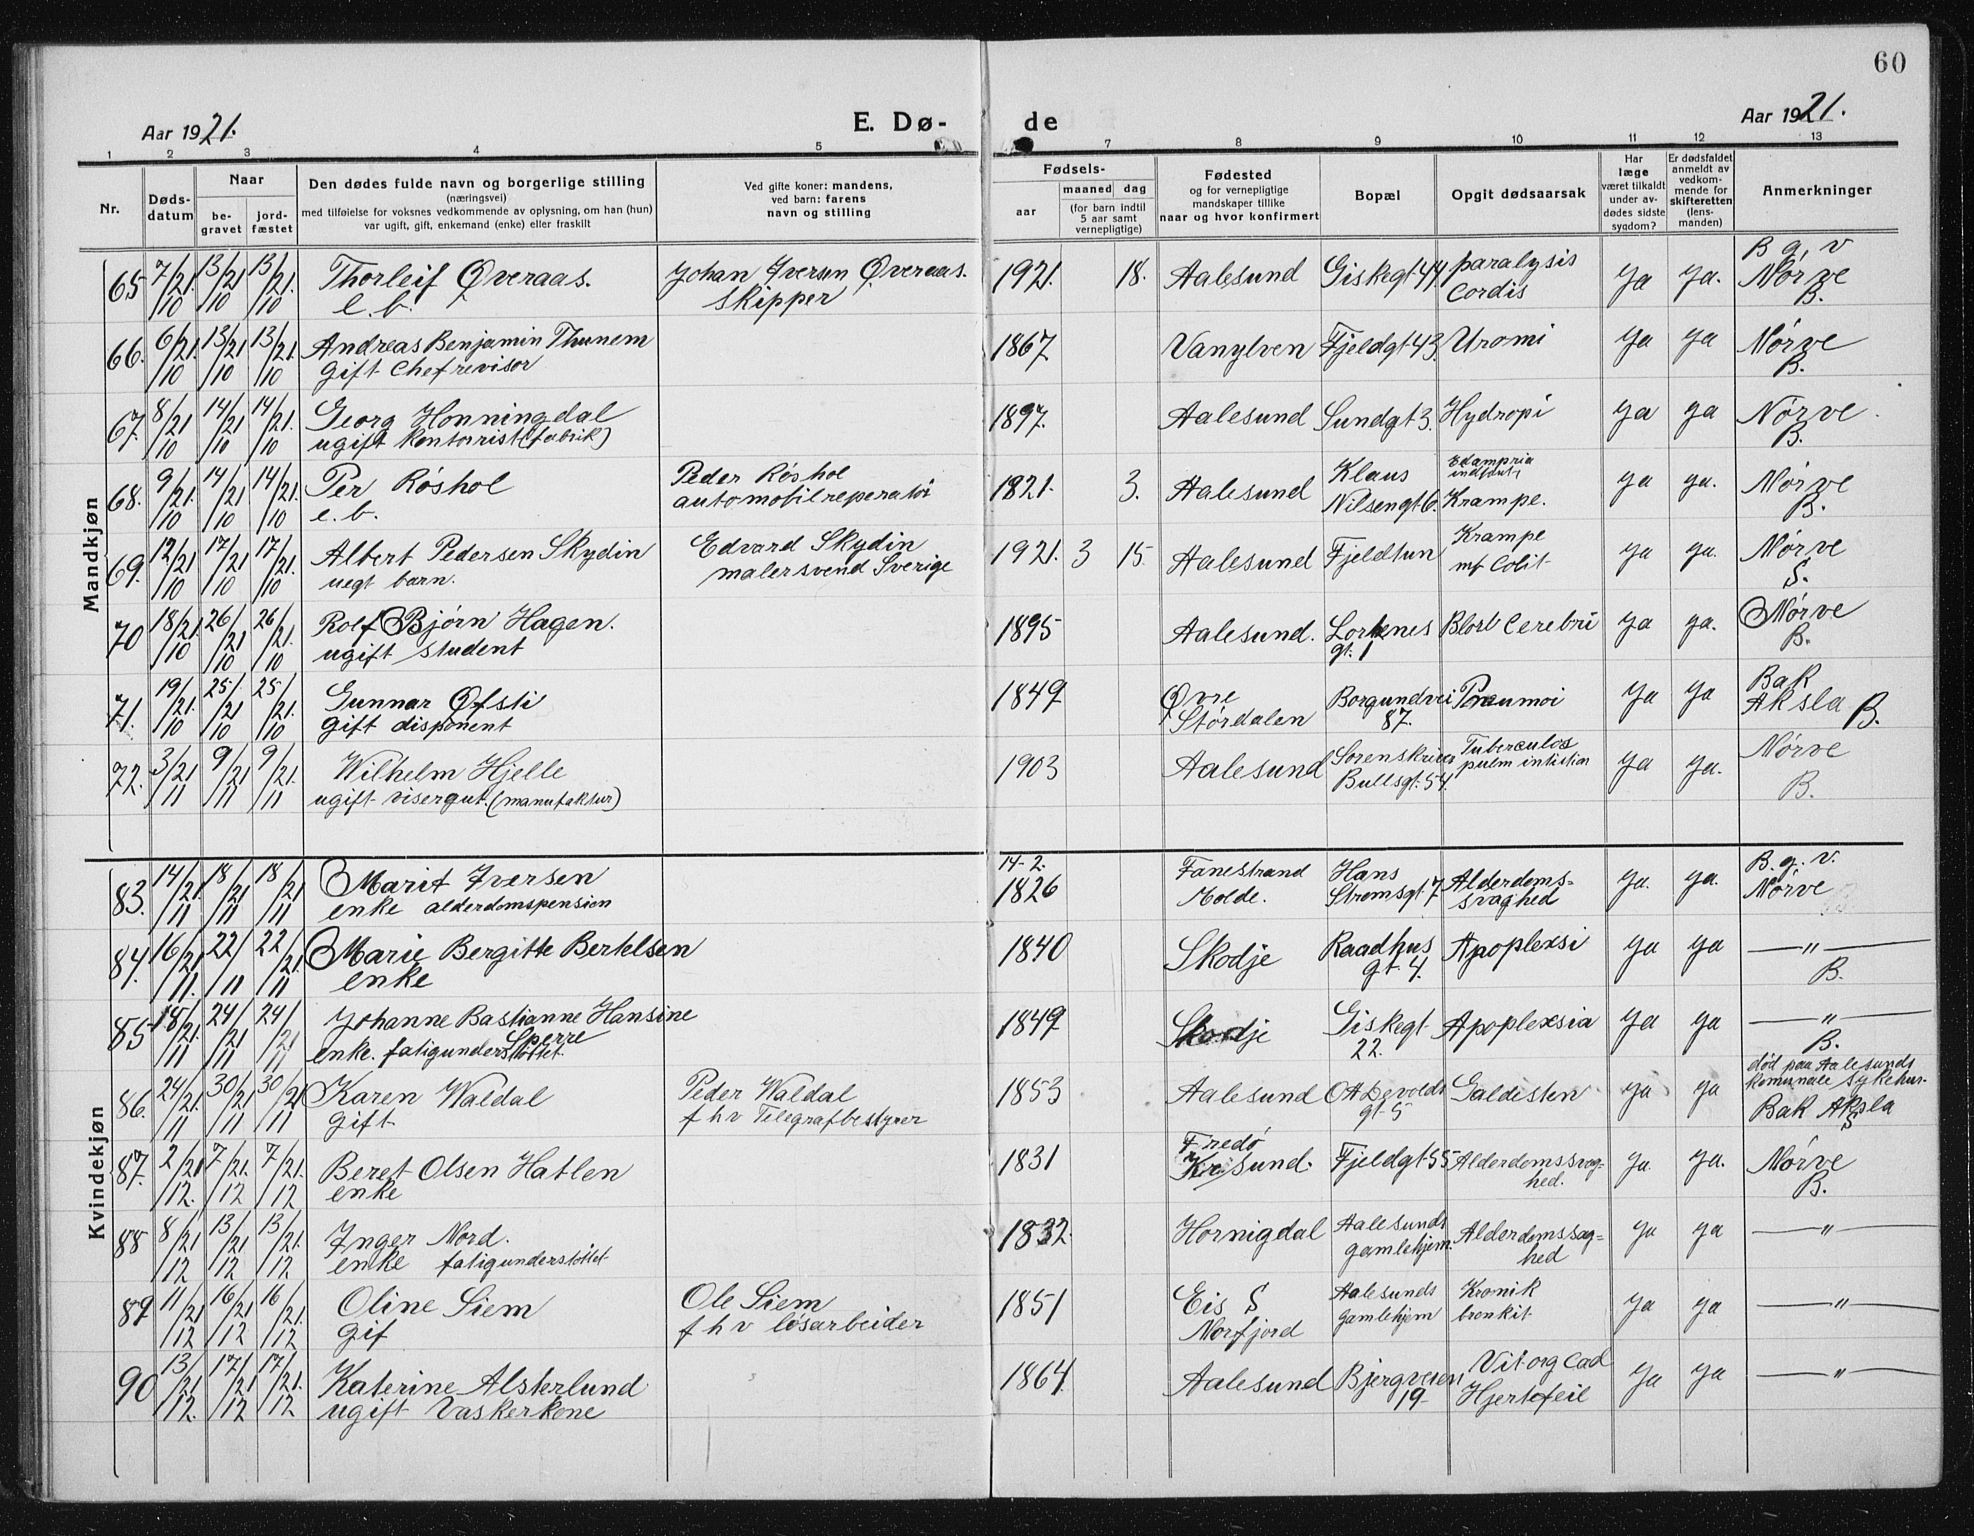 60
Aar 1921.
E. Dø-
de
Aar 1921.
1 2 3 4 5 7 8 9 10 11 12 13
Nr.
Døds-
datum
Naar
be-
gravet
jord-
fæstet
Den dødes fulde navn og borgerlige stilling
(næringsvei)
med tilføielse for voksnes vedkommende av oplysning, om han (hun)
var ugift, gift, enkemand (enke) eller fraskilt
Ved gifte koner: mandens,
ved barn: farens
navn og stilling
Fødsels-
aar
maaned dag
(for barn indtil
5 aar samt
vernepligtige)
Fødested
og for vernepligtige
mandskaper tillike
naar og hvor konfirmert
Bopæl
Opgit dødsaarsak
Har
læge
været tilkaldt
under av-
dødes sidste
sygdom?
Er dødsfaldet
anmeldt av
vedkom-
mende for
skifteretten
(lens-
manden)
Anmerkninger
Mandkjøn
65 7/10 21 13/10 21 13/10 21. Thorleif Øveraas. Johan Iversen Øveraas. 1921. 18. Aalesund Giskegt 44 paralysis Ja Ja. B g. v
e. b. skipper Cordis Nørve
B.
66. 6/10 21 13/10 21 13/10 21. Andreas Benjamin Thunem 1867. Vanylven Fjeldgt 43 Uromi Ja Ja Nørve
gift Chefrevisor B.
67. 8/10 21 14/10 21 14/10 21. Georg Honningdal 1897. Aalesund Sundgt 3. Hydropi Ja Ja Nørve.
ugift kontorrist (fabrik) B.
68. 9/10 21. 14/10 21 14/10 21. Per Røshol Peder Røshol 1821. 3. Aalesund Klaus Ja Ja. Nørve
e. b. automobilreperatør Nilsengt 6. Krampe. B.
69. 12/10 21 17/10 21 17/10 21. Albert Pedersen Skydin Edvard Skydin 1921. 3 15. Aalesund Fjeldtun Krampe Ja Ja. Nørve
uegt barn. malersvend Sverige Colit S.
70 18/10 21 26/10 21 26/10 21. Rolf Bjørn Hagen. 1895 Aalesund. Lorkenes Cerebri Ja Ja. Nørve
ugift student gt. 1 B.
71. 19/10 21. 25/10 21 25/10 21. Gunnar Øfsti 1849 Øvre Borgundvei Pneumoi Ja Ja Bak
gift disponent Størdalen 87. Aksla B.
72. 3/11 21 9/11 21 9/11 21. Wilhelm Hjelle 1903 Aalesund Sorenskriver Tuberculos Ja Ja. Nørve
ugift visergut. (manufaktur) Bullsgt. 54. pulm B.
Kvindekjøn
83. 14/11 21. 18/11 21 18/11 21 Marit Iversen 14-2. 1826 Fanestrand Hans Alderdoms- Ja. Ja. B. g. v.
enke alderdomspension Molde. Stromsgt 7 svaghed Nørve
84. 16/11 21. 22/11 22/11 21. Marie Bergitte Bertelsen 1840 Skodje Raadhus Apoplexsi Ja Ja — " —
enke gt. 4. B.
85 18/11 21. 24/11 21 24/11 21 Johanne Bastianne Hansine 1849 Skodje Giskegt Apoplexsia Ja Ja — " —
Sperre
enke. fatigunderstøttet. 22. B.
86. 24/11 21. 30/11 21 30/11 21 Karen Waldal Peder Waldal 1853 Aalesund O A Devolds Galdesten Ja Ja død paa Aalesunds
gift f h v Telegrafbestyrer gt. 5 komunale sykehus.
Bak Aksla
S
87. 2/12 21 7/12 21. 7/12 21. Beret Olsen Hatlen 1831 Fredø Fjeldgt 55 Alderdomssvag- Ja Ja. Nørve
enke Kr sund. hed. B.
88 8/12 21 13/12 21 13/12 21. Inger Nord. 1832. Hornigdal Aalesunds Alderdomssag- Ja Ja — " —
enke fatigunderstøttet gamlehjem. hed
89 11/12 21 16/12 21 16/12 21. Oline Siem Ole Siem 1851 Eis S Aalesunds Kronik Ja Ja — " —
gif f h v løsarbeider Norfjord gamlehjem bronkit
90 13/12 21 17/12 21 17/12 21. Katerine Alsterlund 1864. Aalesund Bjergveien Vit org Cad Ja Ja — " —
ugift Vaskerkone 19 Hjertefeil